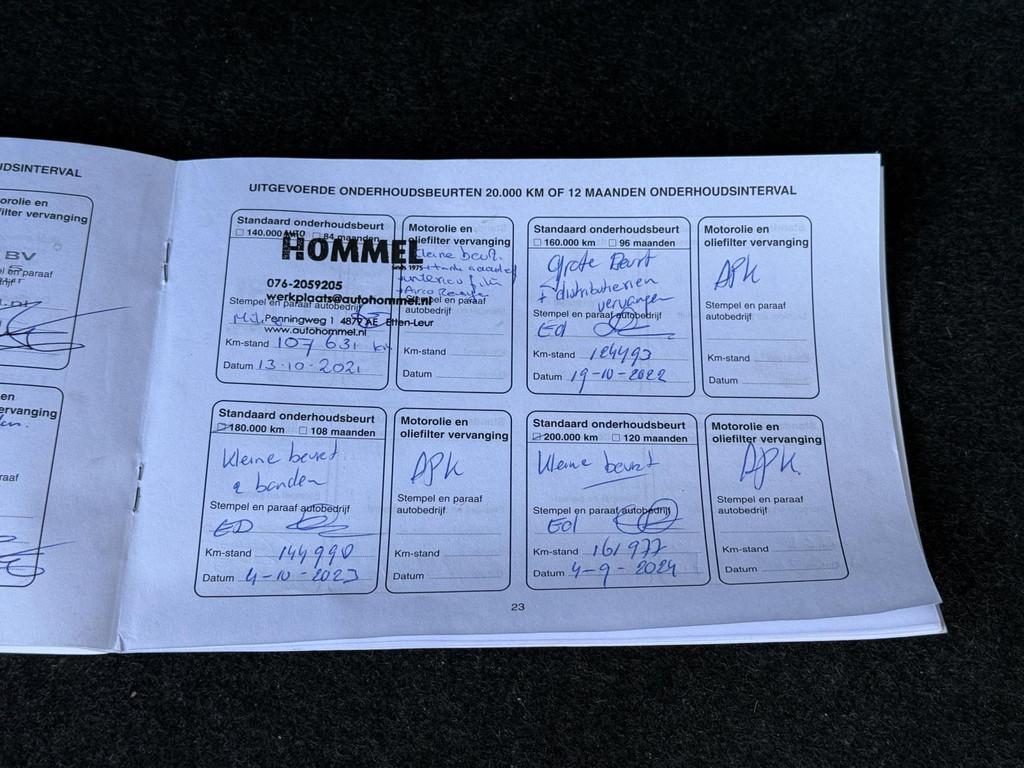 DSINTERVAL
orolie en
ilter vervanging
BV
en paraaf
en
ervanging
araaf
UITGEVOERDE ONDERHOUDSBEURTEN 20.000 KM OF 12 MAANDEN ONDERHOUDSINTERVAL
Standaard onderhoudsbeurt
140.000 AUTO 84 maanden
HOMMEL
Sinds 1975
076-2059205
werkplaats@autohommel.nl
Stempel en paraaf autobedrijf
Penningweg 1 4879 AE Etten-Leur
www.autohommel.nl
Km-stand 107 631 km
Datum 13-10-2021
Motorolie en
oliefilter vervanging
kleine beurt
Stempel en paraaf
autobedrijf
Km-stand
Datum
Standaard onderhoudsbeurt
160.000 km 96 maanden
Grote Beurt
+ distributieriem
vervangen
Stempel en paraaf autobedrijf
Ed
Km-stand 124493
Datum 19-10-2022
Motorolie en
oliefilter vervanging
APK
Stempel en paraaf
autobedrijf
Km-stand
Datum
Standaard onderhoudsbeurt
180.000 km 108 maanden
Kleine beurt
& banden
Stempel en paraaf autobedrijf
ED
Km-stand 144990
Datum 4-10-2023
Motorolie en
oliefilter vervanging
APK
Stempel en paraaf
autobedrijf
Km-stand
Datum
Standaard onderhoudsbeurt
200.000 km 120 maanden
Kleine beurt
Stempel en paraaf autobedrijf
Ed
Km-stand 161977
Datum 4-9-2024
Motorolie en
oliefilter vervanging
APK
Stempel en paraaf
autobedrijf
Km-stand
Datum
23